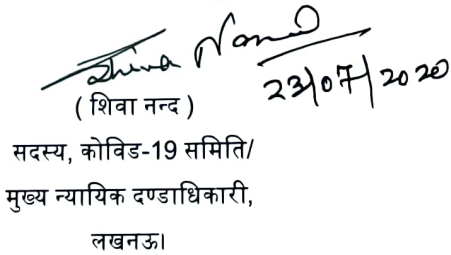 Shiva Nand
23/07/2020
( शिवा नन्द )
सदस्य, कोविड-19 समिति/
मुख्य न्यायिक दण्डाधिकारी,
लखनऊ।